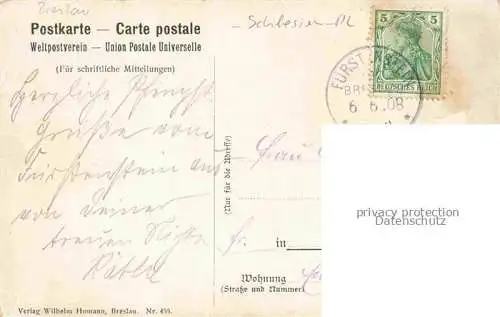 Breslau
Schlesien-PL
Postkarte — Carte postale
Weltpostverein — Union Postale Universelle
(Für schriftliche Mitteilungen)
5 5
DEUTSCHES REICH
FÜRST
BR
6. 6. 08
Herzliche Pfingst
Grüße vom
Fürstenstein aus
von Deiner
treuen Nichte
Käthe
(Nur für die Adresse)
Frau
in
Wohnung
(Straße und Nummer)
privacy protection
Datenschutz
Verlag Wilhelm Homann, Breslau. Nr.